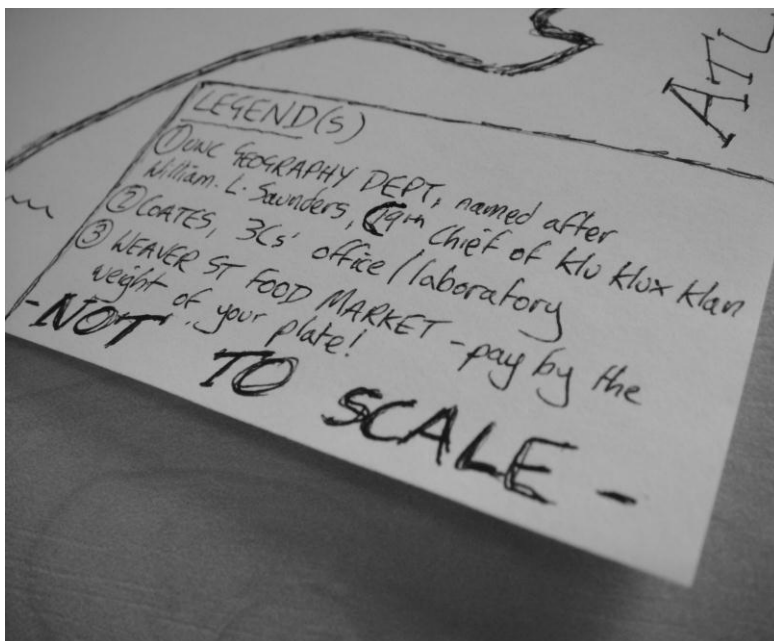 ATL
LEGEND(S)
① UNC GEOGRAPHY DEPT, named after
William. L. Saunders, C19th Chief of klu klux klan
② COATES, 3Cs' office / laboratory
③ WEAVER ST FOOD MARKET - pay by the
weight of your plate!
- NOT TO SCALE -